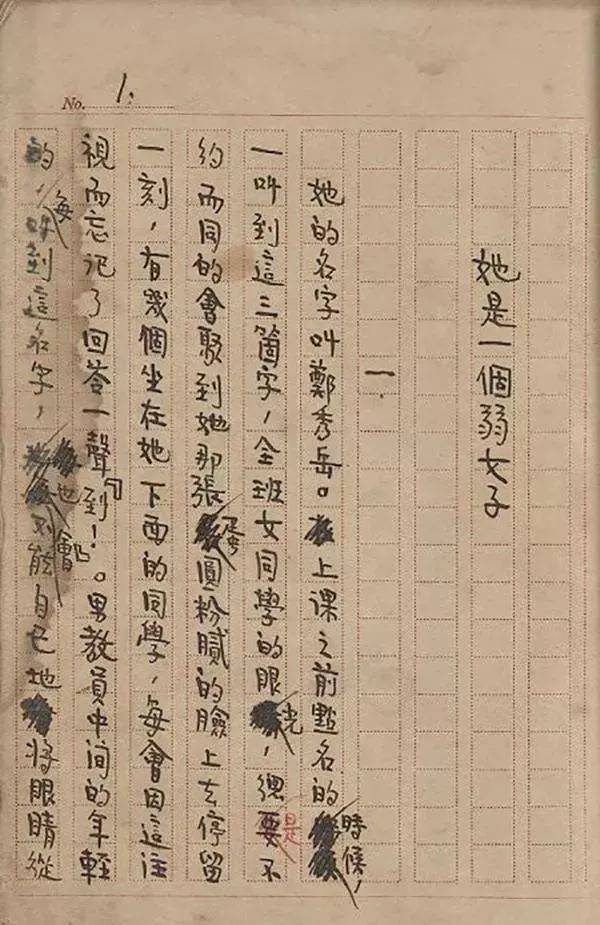 No. 1.
她是一個弱女子
一.
她的名字叫鄭秀岳。上课之前點名的時候，
一叫到這三箇字，全班女同學的眼光，總是不
約而同的會聚到她那張蛋圓粉膩的臉上去停留
一刻，有幾個坐在她下面的同學，每會因這注
視而忘记了回答一聲「到！」。男教員中间的年輕
的，每叫到這名字，也會不能自已地將眼睛從